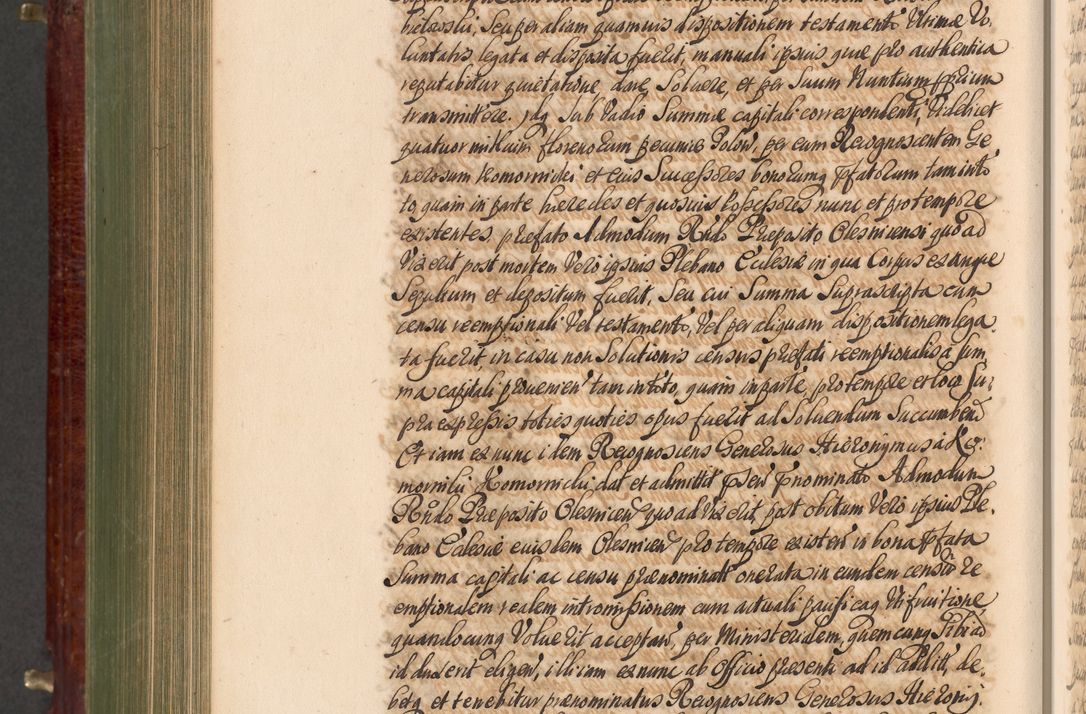 bielawski, seu per aliam quamuis dispositionem testamenti Ultimæ Vo,
luntatis legata et disposita fuerit, manuali ipsius quæ pro authentica
reputabitur quietatione, dare, Soluere, et per Suum Nuntium pprium
transmittere. Idq Sub Vadio Summæ capitali correspondenti, Videlicet
quatuor millium florenorum pecuniæ Polon, per eum Recognoscentem Ge
nerosum Komornicki et eius Successores bonorumq pfatorum tam in to
to, quam in parte hæredes et quosuis Possessores nunc et pro tempore
existentes, præfato Admodum Rndo Præposito Olesnicensi quo ad
Vixerit post mortem Vero ipsius Plebano Ecclesiæ in qua Corpus exangue
Sepultum et depositum fuerit, Seu cui Summa Suprascripta cum
censu reemptionali Vel testamento, Vel per aliquam dispositionem lega
ta fuerit, in casu non Solutionis census præfati reemptionalis á Sum,
ma capitali prouenien tam in toto, quam in parte, pro tempore et loco Su,
pra expressis toties quoties opus fuerit ad Soluendum Succumben
Et iam ex nunc idem Recognoscens Generosus Hieronymus á Ko,
morniki Komornicki dat et admittit pnominato Admodum
Rndo Præposito Olesnicen quo ad Vixerit, post obitum Vero ipsius Ple,
bano Ecclesiæ eiusdem Olesnicen pro tempore existen in bona pfata
Summa capitali ac censu prænominatt onerata in eundem censum re
emptionalem realem intromissionem cum actuali pacificaq Usfruitione
quandocunq Voluerit acceptan, per Ministerialem, quemcunq Sibi ad
id duxerit eligen, illi iam ex nunc ab Officio præsenti ad id addit, de,
betq et tenebitur prænominatus Recognoscens Generosus Hierony,